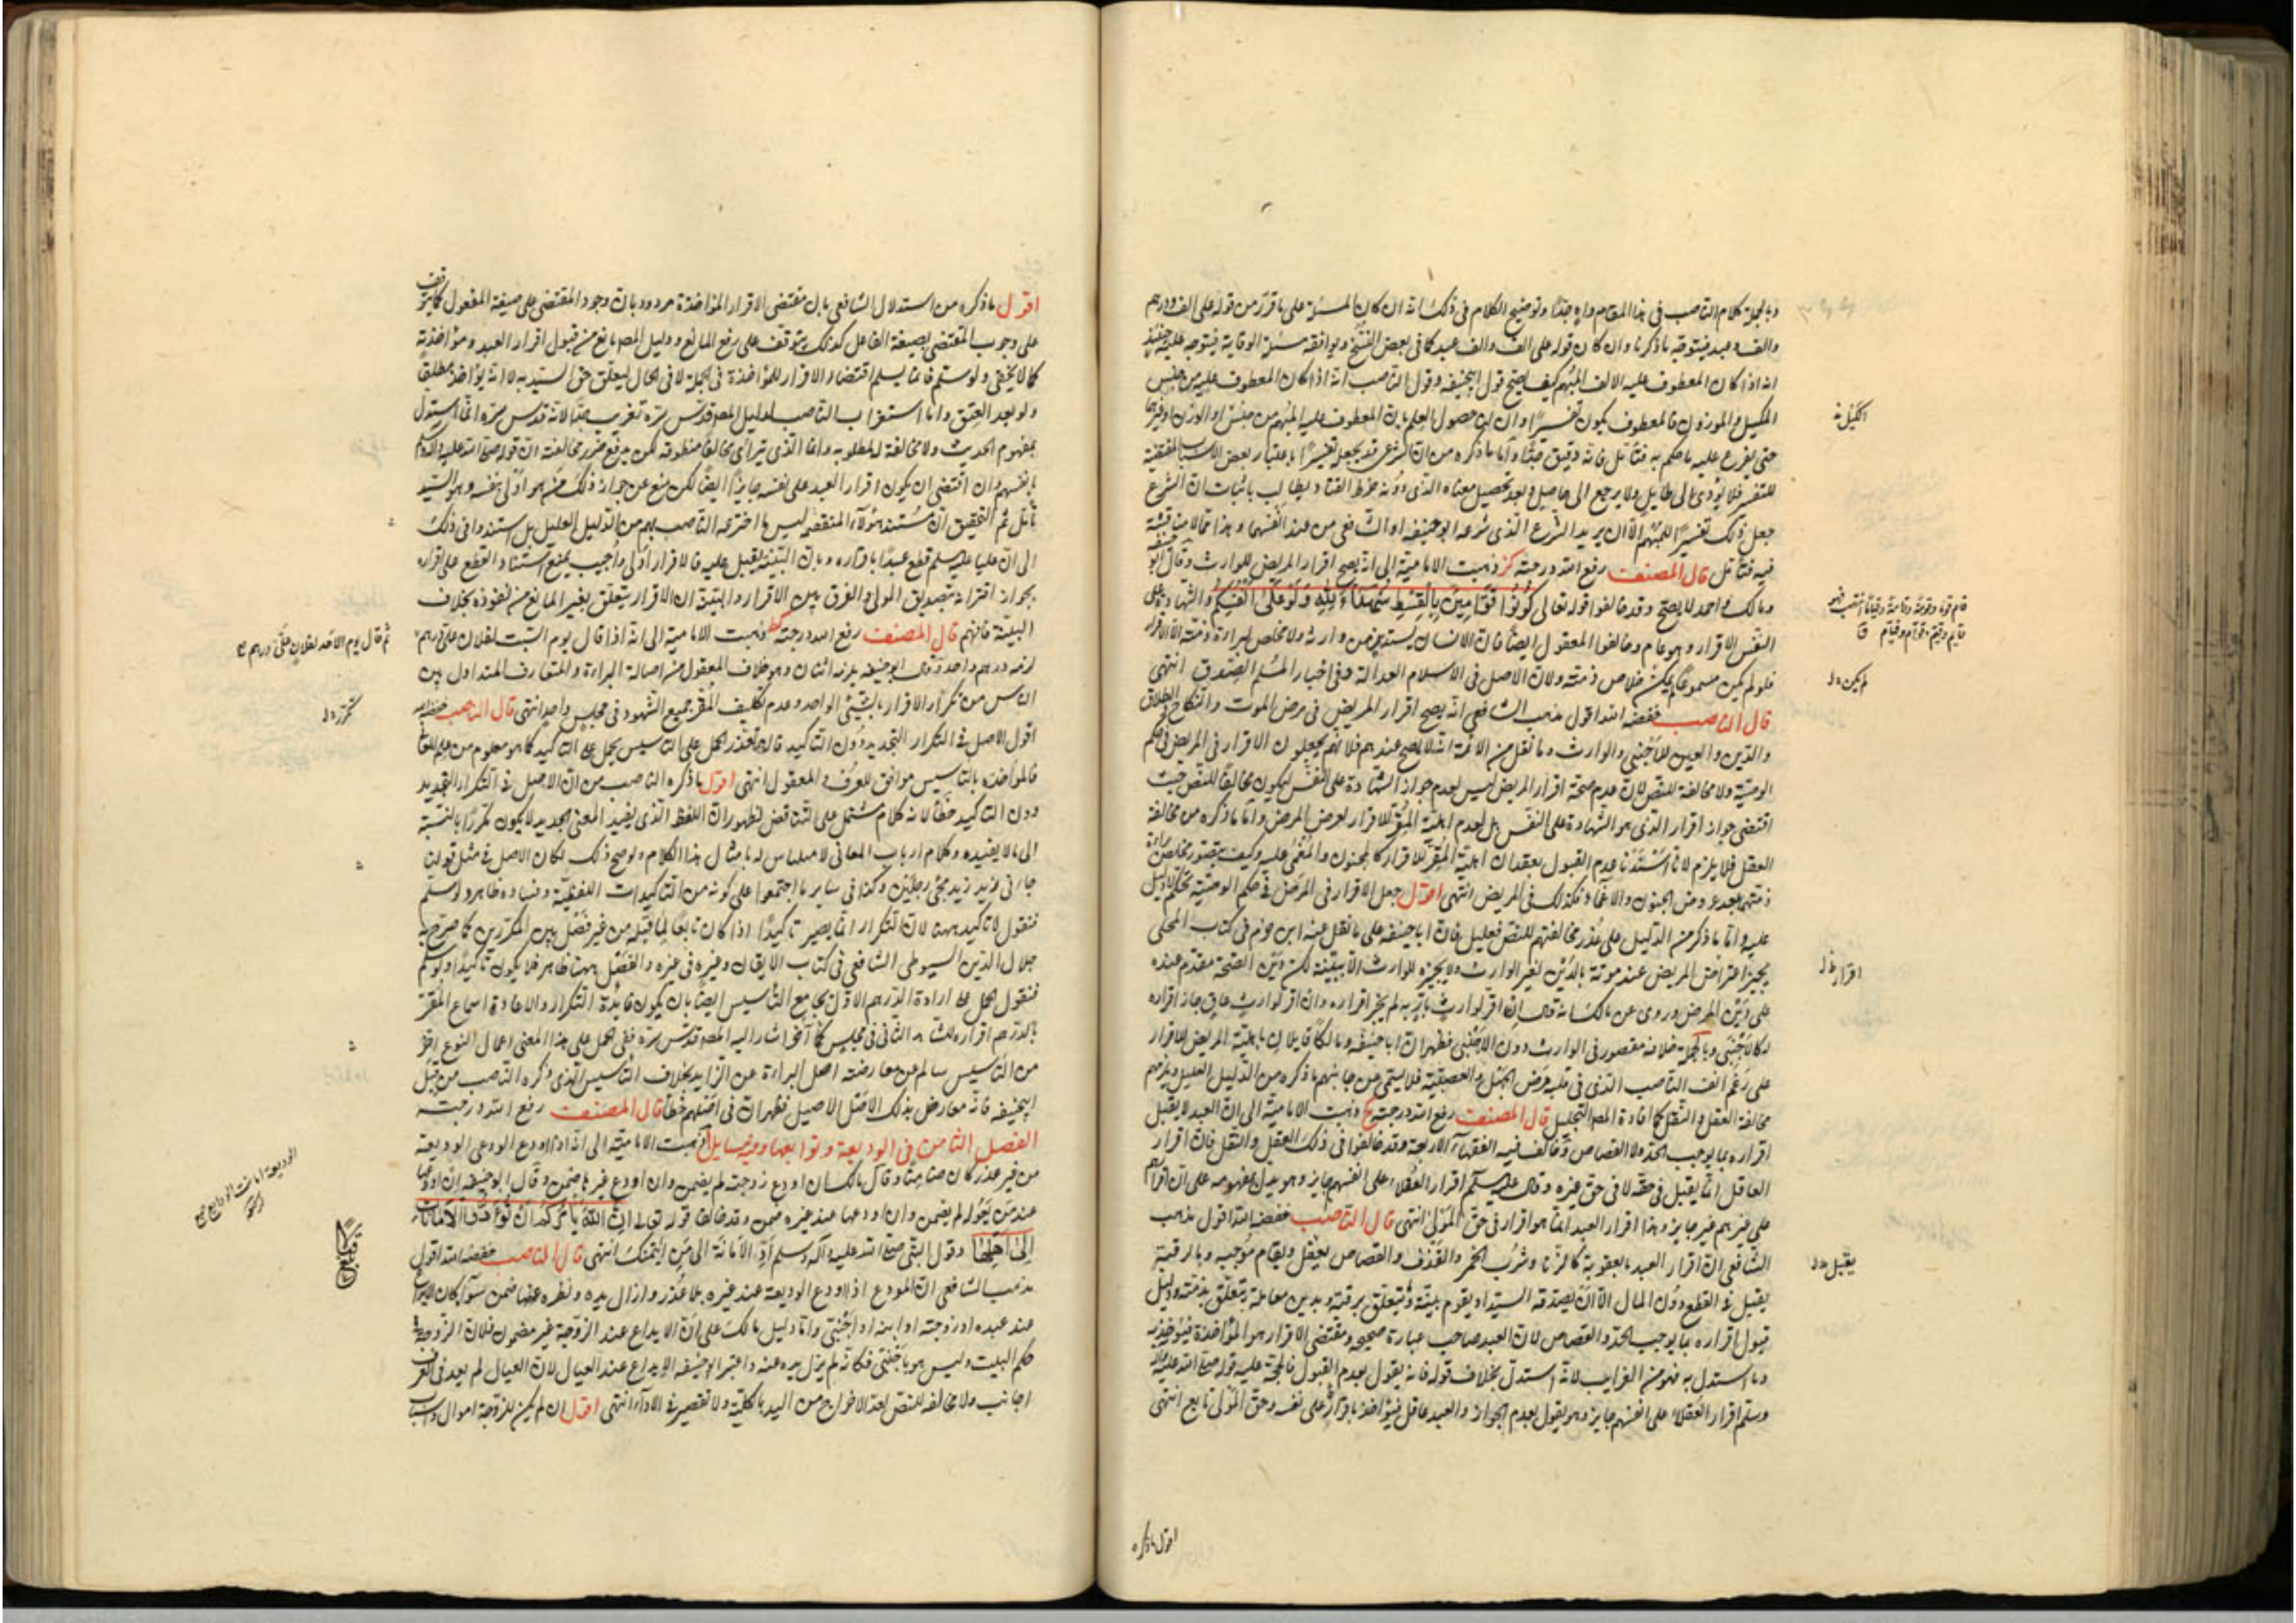 وبالجملة كلام الناصب في هذا المقام واه جدا وتوضيح الكلام في ذلك انه ان كان المسئلة على ما قرر من قوله على الف ودرهم
والف وعبد فيتوجه ما ذكرنا وان كان قوله على الف والف عبد كما في بعض النسخ ويوافقه مسئلة الوقاية فيتوجه عليه حينئذ
انه اذا كان المعطوف عليه الالف المبهم كيف يصح قول ابيحنيفه وقول الناصب انه اذا كان المعطوف عليه من جنس
المكيل والموزون فالمعطوف يكون تفسيرا وان حصول العلم بان المعطوف عليه المبهم من جنس او الوزن او غيره
حتى يفرع عليه ما حكم به فتأمل فانه دقيق جدا واما ما ذكره من ان الشرع قد يجعل تفسيرا باعتبار بعض الاسباب المقتضية
للتفسير فلا يؤدى الى طايل ولا يرجع الى حاصل وبعد تحصيل معناه الذى دونه خرط القتاد يطالب باثبات ان الشرع
جعل ذلك تفسيرا للمبهم الا ان يريد الشرع الذى شرعه ابو حنيفه او الشافعى من عند انفسهما وهذا مما لا مناقشة
فيه فتأمل قال المصنف رفع الله درجته كز ذهبت الامامية الى انه يصح اقرار المريض للوارث وقال ابو حنيفه
ومالك واحمد لا يصح وقد خالفوا قوله تعالى كونوا قوامين بالقسط شهداء لله ولو على انفسكم والشهادة على
النفس الاقرار وهو عام وخالفوا المعقول ايضا فان الانسان يستدين من وارثه ولا مخلص لبراءة ذمته الا الاقرار
فلو لم يكن مسموعا لم يمكن خلاص ذمته ولان الاصل في الاسلام العدالة وفي اخبار المسلم الصدق انتهى
قال الناصب خفضه الله اقول مذهب الشافعى انه يصح اقرار المريض في مرض الموت والنكاح والطلاق
والدين والعين للاجنبى والوارث وما نقل من الائمة انه لا يصح عندهم فلانهم يجعلون الاقرار في المريض في حكم
الوصية ولا مخالفة للنص لان عدم صحة اقرار المريض ليس لعدم جواز الشهادة على النفس ليكون مخالفا للنص حيث
اقتضى جواز اقرار الذى هو الشهادة على النفس بل لعدم اهلية المقر للاقرار لعرض المرض واما ما ذكره من مخالفة
العقل فلا يلزم لانا اسندنا عدم القبول بفقدان اهلية المقر للاقرار كالمجنون والمغمى عليه وكيف يتصور خلاص براءة
ذمتهما بعد عروض الجنون والاغماء فكذلك في المريض انتهى اقول جعل الاقرار في المرض في حكم الوصية تحكم لا دليل
عليه واما ما ذكر من الدليل على عذر مخالفتهم للنص فعليل فان ابا حنيفه على ما نقل عنه ابن حزم في كتاب المحلى
يجيز اعتراض المريض عند موته بالدين لغير الوارث ولا يجيزه للوارث الا ببينة لكن دين الصحة مقدم عنده
على دين المرض وروى عن مالك انه قال ان اقر لوارث بار به لم يجز اقراره وان اقر لوارث عاق جاز اقراره
له كالاجنبى وبالجملة خلافه مقصور في الوارث دون الاجنبى فظهر ان ابا حنيفه ومالكا قايلان باهلية المريض للاقرار
على رغم انف الناصب الذى في قلبه مرض الجهل والعصبية فلا يتمشى عن جانبهم ما ذكره من الدليل العليل ويلزمهم
مخالفة العقل والنقل كما افاده المصنف الجليل قال المصنف رفع الله درجته كح ذهبت الامامية الى ان العبد لا يقبل
اقراره بما يوجب الحد ولا القصاص وخالف فيه الفقهاء الاربعة وقد خالفوا في ذلك العقل والنقل فان اقرار
العاقل انما يقبل في حقه لا في حق غيره وقال عليه السلم اقرار العقلاء على انفسهم جايز وهو يدل بمفهومه على ان اقرارهم
على غيرهم غير جايز وهذا اقرار العبد انما هو اقرار في حق المولى انتهى قال الناصب خفضه الله اقول مذهب
الشافعى ان اقرار العبد بالعقوبة كالزنا وشرب الخمر والقذف والقصاص يقبل ويقام موجبه وبالسرقة
يقبل في القطع دون المال الا ان يصدقه السيد او يقوم بينة ويتعلق برقبته وبدين معاملة يتعلق بذمته ودليل
قبول اقراره بما يوجب الحد والقصاص لان العبد صاحب عبارة صحيحة ومقتضى الاقرار هو المؤاخذة فيؤخذ به
وما استدل به فهو من الغرايب لانه استدل بخلاف قوله فانه يقول بعدم القبول فالحجة عليه قوله صلى الله عليه وآله
وسلم اقرار العقلاء على انفسهم جايز وهو يقول بعدم الجواز والعبد عاقل فيؤاخذ باقراره على نفسه وحق المولى تابع انتهى
الكيل نه
قام قوما وقومة وقامة وقياما انتصب فهو
قايم وقيم وقوام وقيام ق
لم يكن خ ل
اقرار خ ل
يقبل خ ل
اقول ما ذكره
اقول ما ذكره من استدلال الشافعى بان مقتضى الاقرار المؤاخذة مردود بان وجود المقتضى على صيغة المفعول كما يتوقف
على وجوب المقتضى بصيغة الفاعل كذلك يتوقف على رفع المانع ودليل المصنف مانع من قبول اقرار العبد ومؤاخذته
كما لا يخفى ولو سلم فانما يسلم اقتضاء الاقرار للمؤاخذة في الجملة لا في الحال ليتعلق حق السيد به لا انه يؤاخذ مطلقا
ولو بعد العتق واما استغراب الناصب لدليل المصنف قدس سره فغريب جدا لانه قدس سره انما استدل
بمفهوم الحديث ولا مخالفة لمطلوبه وانما الذى يترأى مخالفا منطوقه لكن يرفع ضرر مخالفته ان قوله صلى الله عليه وآله وسلم
بانفسهم وان اقتضى ان يكون اقرار العبد على نفسه جايزا ايضا لكن منع عن جواز ذلك من هو اولى بنفسه وهو السيد
تأمل ثم التحقيق ان مستند هؤلاء المتفقهه ليس ما اخترعه الناصب لهم من الدليل العليل بل استندوا في ذلك
الى ان عليا عليه السلم قطع عبدا باقراره وبان البينة يقبل عليه فالاقرار اولى واجيب بمنع استناد القطع على اقراره
بجواز اقترانه بتصديق المولى والفرق بين الاقرار والبينة ان الاقرار يتعلق بغير المانع من نفوذه بخلاف
البينة فافهم قال المصنف رفع الله درجته كط ذهبت الامامية الى انه اذا قال يوم السبت لفلان على درهم
لزمه درهم واحد وقال ابو حنيفه يلزمه اثنان وهو خلاف المعقول من اصالة البراءة والمتعارف المتداول بين
الناس من تكرار الاقرار بالشيئ الواحد وعدم تكليف المقر بجميع الشهود في مجلس واحد انتهى قال الناصب خفضه الله
اقول الاصل في التكرار التجديد دون التأكيد فان تعذر الحمل على التأسيس يحمل على التأكيد كما هو معلوم من علم المعانى
فالمؤاخذه بالتأسيس موافق للعرف والمعقول انتهى اقول ما ذكره الناصب من ان الاصل في التكرار التجديد
دون التأكيد خطأ لانه كلام مشتمل على التناقض لظهور ان اللفظ الذى يفيد المعنى الجديد لا يكون تكررا بالنسبة
الى ما لا يفيده وكلام ارباب المعانى لا مساس له بامثال هذا الكلام ولو صح ذلك لكان الاصل في مثل قولنا
جاءنى زيد زيد مجئ رجلين وكذا في ساير ما اجتمعوا على كونه من التأكيدات اللفظية وفساده ظاهر ولو سلم
فنقول لا تأكيد ههنا لان التكرار انما يصير تأكيدا اذا كان تابعا لما قبله من غير فصل بين المكررين كما صرح به
جلال الدين السيوطى الشافعى في كتاب الاتقان وغيره في غيره والفصل ههنا ظاهر فلا يكون تأكيدا ولو سلم
فنقول الحمل على ارادة الدرهم الاول يجامع التأسيس ايضا بان يكون فايدة التكرار والاعادة اسماع المقر
بالدرهم اقراره للشاهد الثانى في مجلس كما آخر اشار اليه المصنف قدس سره ففي الحمل على هذا المعنى اعمال النوع اخر
من التأسيس سالم عن معارضته اصل البراءة عن الزايد بخلاف التأسيس الذى ذكره الناصب من قبل
ابيحنيفه فانه معارض بذلك الاصل الاصيل فظهر ان في اصلهم خطأ قال المصنف رفع الله درجته
الفصل الثامن في الوديعة وتوابعها وفيه مسايل ا ذهبت الامامية الى انه اذا اودع الودعى الوديعة
من غير عذر كان ضامنا وقال مالك ان اودع زوجته لم يضمن وان اودع غيرها ضمن وقال ابو حنيفه ان اودعها
عند من يعوله لم يضمن وان اودعها عند غيره ضمن وقد خالفا قوله تعالى ان الله يأمركم ان تؤدوا الامانات
الى اهلها وقول النبى صلى الله عليه وآله وسلم اد الامانة الى من ايتمنك انتهى قال الناصب خفضه الله اقول
مذهب الشافعى ان المودع اذا اودع الوديعة عند غيره بلا عذر وازال يده ونظره عنها ضمن سواء كان الايداع
عند عبده او زوجته او ابنه او اجنبى واما دليل مالك على ان الايداع عند الزوجة غير مضمون فلان الزوجة في
حكم البيت وليس هو باجنبى فكانه لم يزل يده عنه واعتبر ابو حنيفه الايداع عند العيال لان العيال لم يعد في العرف
اجانب ولا مخالفه للنص لعدم الاخراج من اليد بالكلية ولا تقصير في الاداء انتهى اقول ان لم يكن للزوجة اموال واسباب
ثم قال يوم الاحد لفلان على درهم
تكرر خ ل